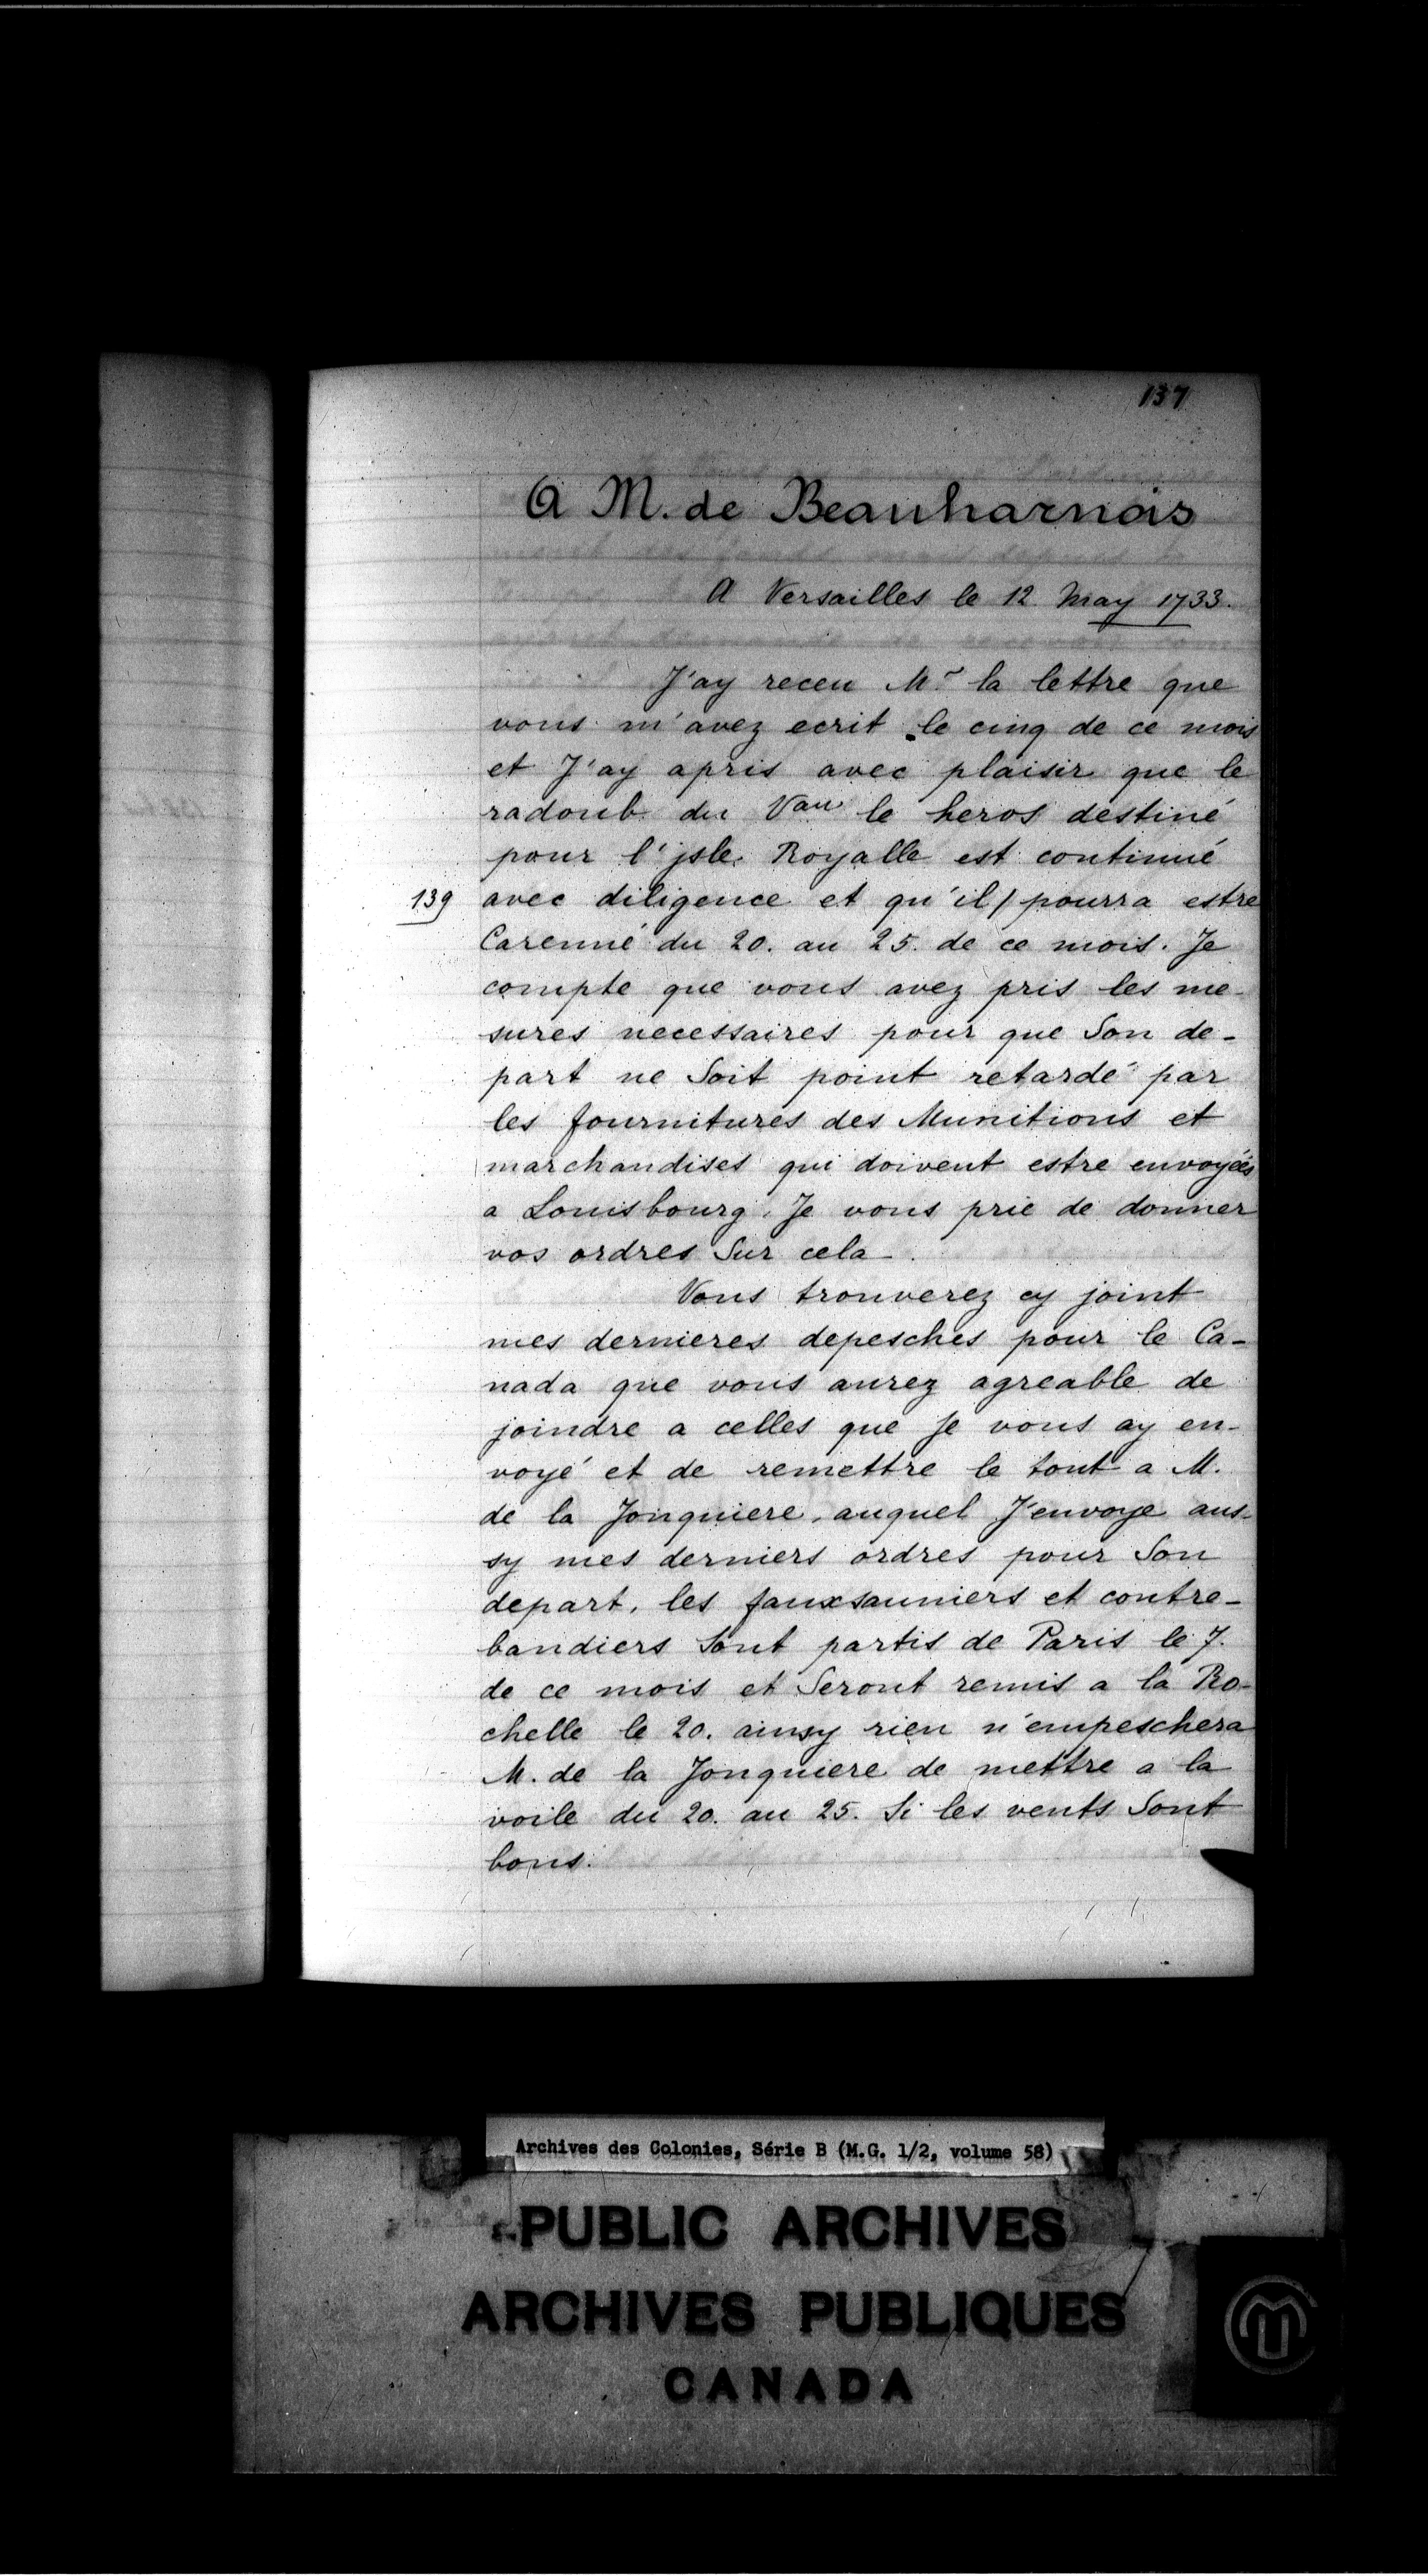 137
A M. de Beauharnois
A Versailles le 12 May 1733.
J'ay receu Mr la lettre que
vous m'avez ecrit le cinq de ce mois
et J'ay apris avec plaisir que le
radoub du Vau le heros destiné
pour l'jsle Royalle est continué
139 avec diligence et qu'il/pourra estre
Carenné du 20. au 25. de ce mois. Je
compte que vous avez pris les me-
sures necessaires pour que Son de-
part ne Soit point retardé par
les fournitures des Munitions et
marchandises qui doivent estre envoyées
a Louisbourg. Je vous prie de donner
vos ordres Sur cela.
Vous trouverez cy joint
mes dernieres depesches pour le Ca-
nada que vous aurez agreable de
joindre a celles que Je vous ay en-
voyé et de remettre le tout a M.
de la Jonquiere, auquel J'envoye aus-
sy mes derniers ordres pour Son
depart. les fauxsauniers et contre-
bandiers Sont partis de Paris le 7.
de ce mois et Seront remis a la Ro-
chelle le 20. ainsy rien n'empeschera
M. de la Jonquiere de mettre a la
voile du 20. au 25. Si les vents Sont
bons.
Archives des Colonies, Série B (M.G. 1/2, volume 58)
PUBLIC ARCHIVES
ARCHIVES PUBLIQUES
CANADA